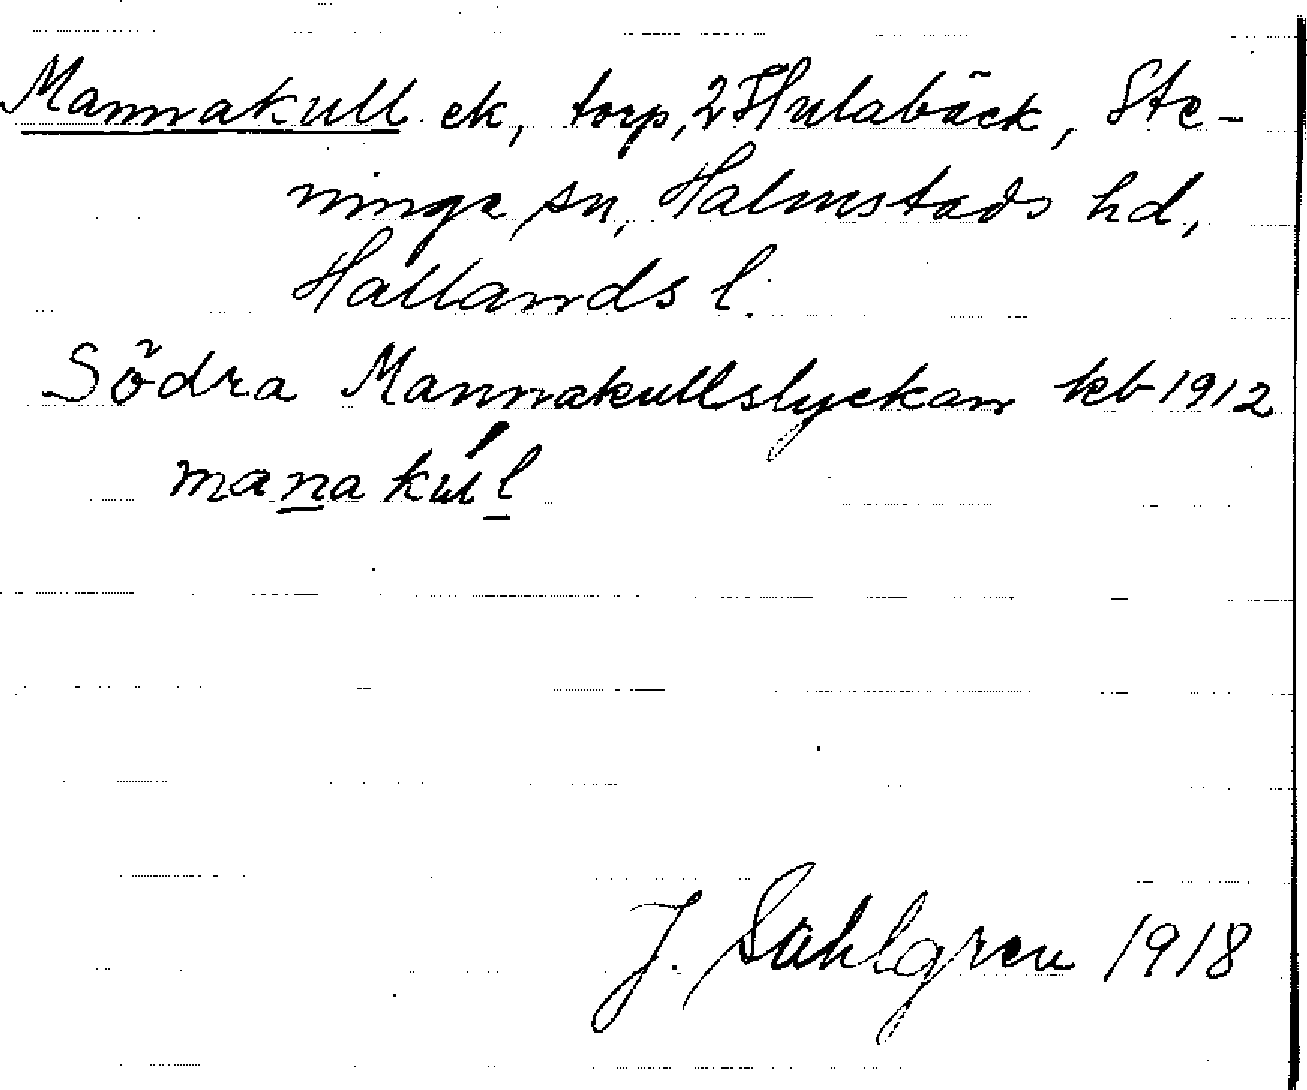 Mannakull ek, torp, 2 Hulabäck, Ste-
ninge sn, Halmstads hd,
Hallands l.
Södra Mannakullslyckan kb 1912
manakúl
J. Sahlgren 1918